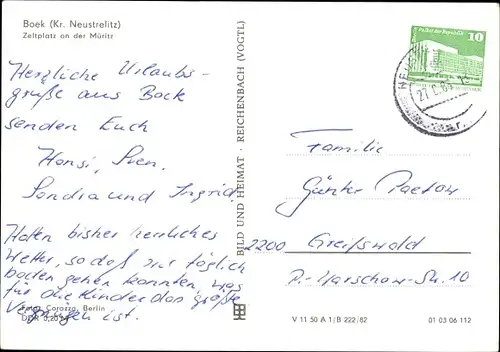 Boek (Kr. Neustrelitz)
Zeltplatz an der Müritz
Herzliche Urlaubs-
grüße aus Boek
senden Euch
Hansi, Sven,
Sandra und Ingrid.
Hatten bisher herrliches
Wetter, so daß wir täglich
baden gehen konnten, was
für die Kinder das größte
Vergnügen ist.
Foto: Corazza, Berlin
DDR 0,20 M
BILD UND HEIMAT · REICHENBACH (VOGTL)
10
Palast der Republik
27.
Familie
Günter Paetow
2200 Greifswald
P.-Warschow-Str. 10
V 11 50 A 1/B 222/82
01 03 06 112